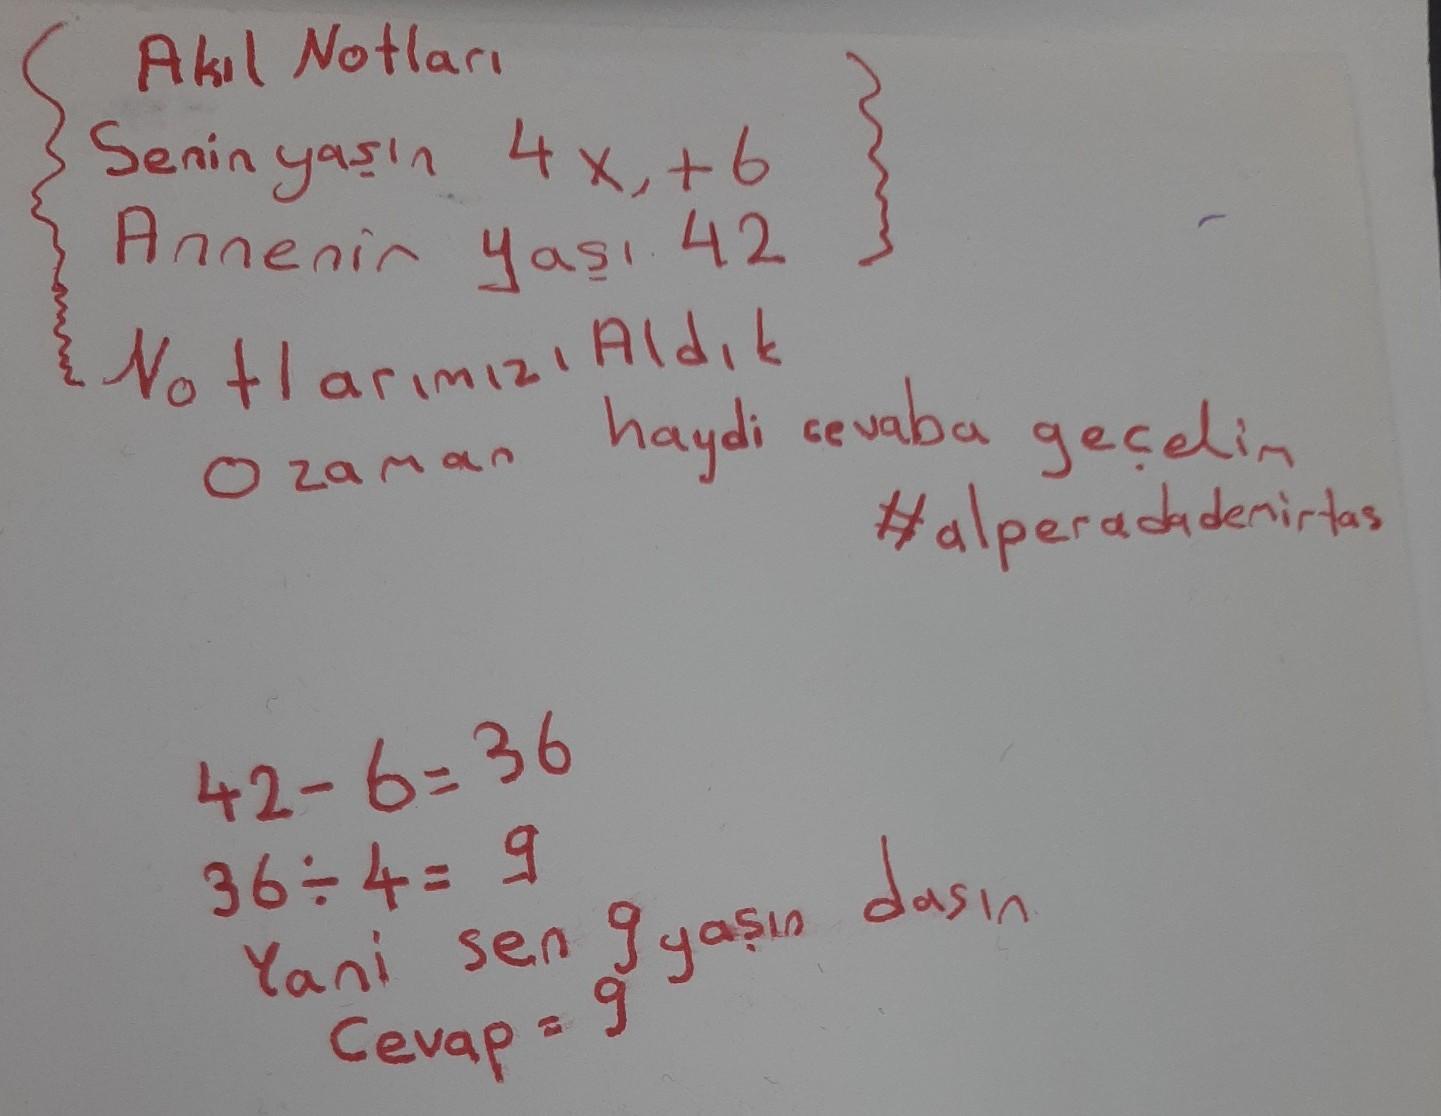 Akıl Notları
Senin yaşın 4x,+6
Annenin yaşı 42
Notlarımızı Aldık
O zaman haydi cevaba geçelim
#alperadademirtas
42-6=36
36÷4=9
Yani sen 9 yaşın dasın
Cevap=9